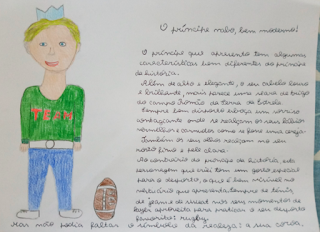 O príncipe nabo, bem moderno!
O príncipe que apresento tem algumas
características bem diferentes do príncipe
da história.
Além de alto e elegante, o seu cabelo louro
e brilhante, mais parece uma seara de trigo
do campo
Sempre bem disposto esboça um sorriso
contagiante onde se realçam os seus lábios
vermelhos e carnudos como se fosse uma cereja.
Também os seus olhos realçam no seu
rosto fino e pele clara.
Ao contrário do príncipe da história, esta
personagem que criei tem um gosto especial
para o desporto, o que é bem visível no
vestuário que apresenta, sempre de ténis
de jeans e de sweat nos seus momentos de
lazer aproveita para praticar o seu desporto
favorito: rugby.
Mas não podia faltar o símbolo da realeza: a sua coroa.
TEEN